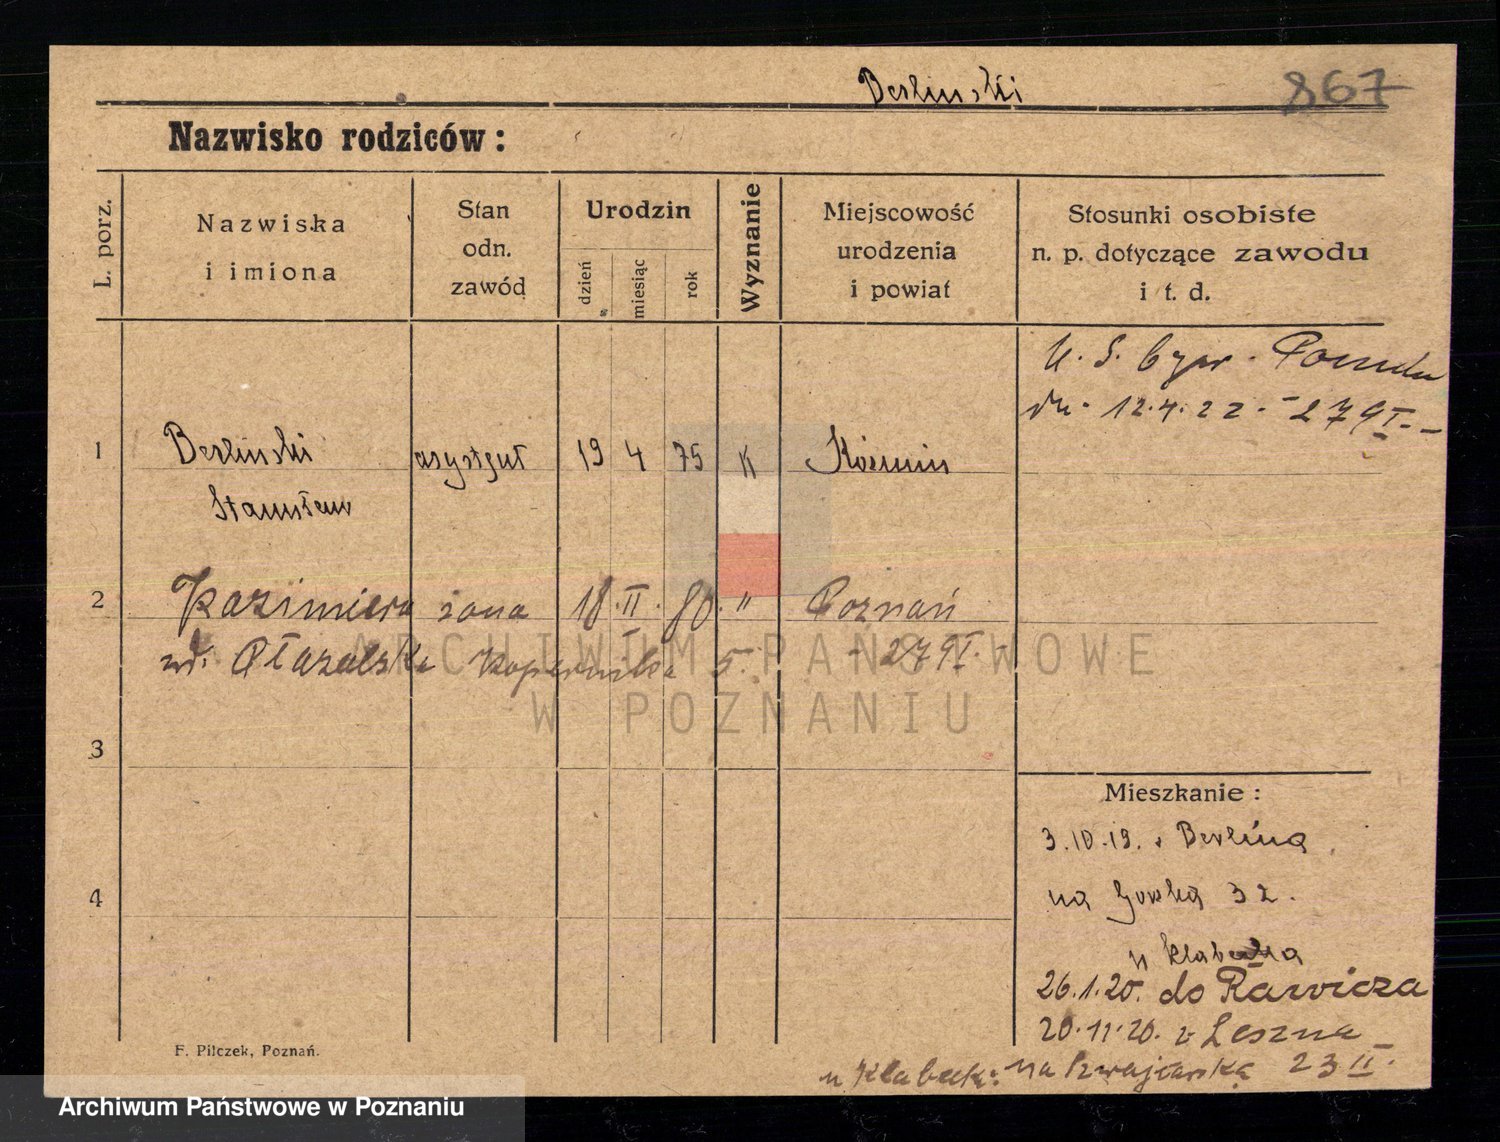 Berliński 867
Nazwisko rodziców:
L. porz.
Nazwiska
i imiona
Stan
odn.
zawód
Urodzin
dzień
miesiąc
rok
Wyznanie
Miejscowość
urodzenia
i powiat
Stosunki osobiste
n. p. dotyczące zawodu
i t. d.
dn. 12.4.22. - 279I. -
1 Berliński asystent 19 4 75 K Koźmin
Stanisław
2 Kazimiera żona 18.II.80. " Poznań
Kopernika 5. - 279I. -
3
4
Mieszkanie:
3.10.19. z Berlina
na Górka 32.
u Klabecka
26.1.20. do Rawicza
20.11.20. z Leszna
u Klabeck: na Szwajcarską 23 II.
F. Pilczek, Poznań.
ARCHIWUM PAŃSTWOWE
W POZNANIU
Archiwum Państwowe w Poznaniu